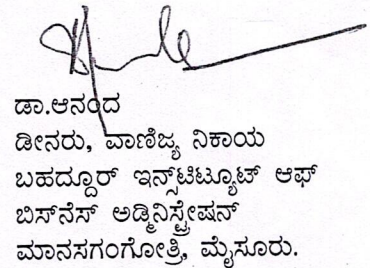 ಡಾ.ಆನಂದ
ಡೀನರು, ವಾಣಿಜ್ಯ ನಿಕಾಯ
ಬಹದ್ದೂರ್ ಇನ್ಸ್‌ಟಿಟ್ಯೂಟ್ ಆಫ್
ಬಿಸ್‌ನೆಸ್ ಅಡ್ಮಿನಿಸ್ಟ್ರೇಷನ್
ಮಾನಸಗಂಗೋತ್ರಿ, ಮೈಸೂರು.